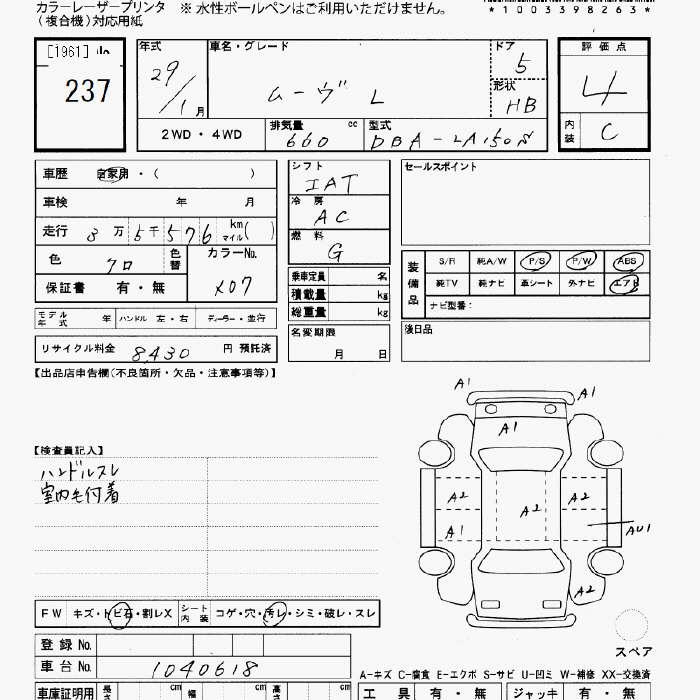 カラーレーザープリンタ ※ 水性ボールペンはご利用いただけません。
(複合機)対応用紙
*1003398263*
[1961]
237
年式 29/1月
車名・グレード ムーヴ L
ドア 5
形状 HB
2WD・4WD
排気量 660 cc
型式 DBA-LA150S
評価点 4
内装 C
車歴 自家用・( )
車検 年 月
走行 3万5千576 km マイル( )
色 クロ 色替
カラーNo. X07
保証書 有・無
モデル年式 年 ハンドル 左・右 ディーラー・並行
リサイクル料金 8,430 円 預託済
シフト IAT
冷房 AC
燃料 G
乗車定員 名
積載量 kg
総重量 kg
名変期限 月 日
セールスポイント
装備品 S/R 純A/W P/S P/W ABS
純TV 純ナビ 革シート 外ナビ エアB
ナビ型番:
後日品
【出品店申告欄(不良箇所・欠品・注意事項等)】
【検査員記入】
ハンドルスレ
室内毛付着
A1 A1
A1
A2 A2 A2
A1 AU1
A2
スペア
FW キズ・トビ石・割レX シート内装 コゲ・穴・汚レ・シミ・破レ・スレ
登録 No.
車台 No. 1040618
A-キズ C-腐食 E-エクボ S-サビ U-凹ミ W-補修 XX-交換済
車庫証明用 長さ cm 幅 cm 高さ cm
工具 有・無 ジャッキ 有・無